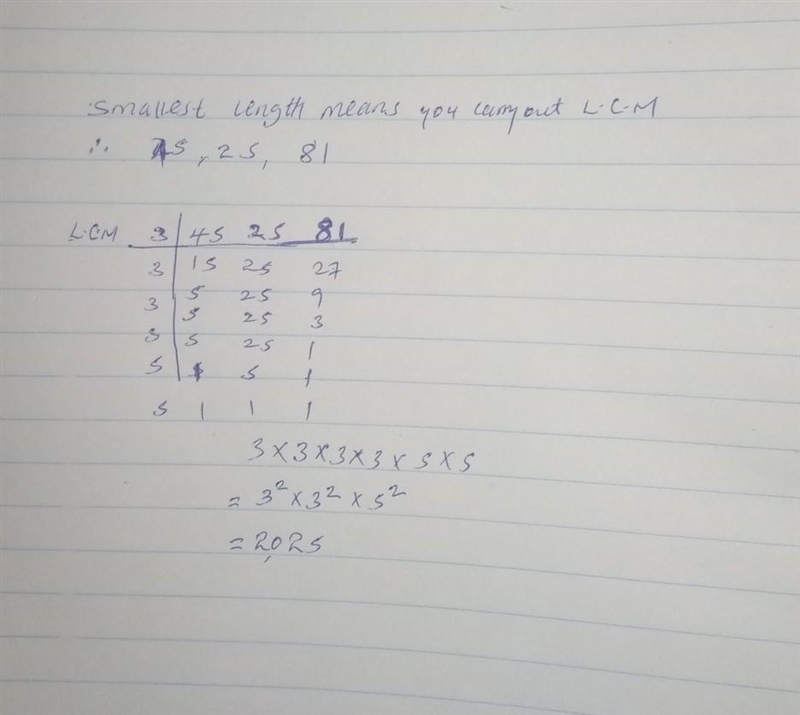 Smallest length means you carry out L.C.M
∴ 45, 25, 81
L.CM 3 45 25 81
3 15 25 27
3 5 25 9
3 5 25 3
5 5 25 1
5 1 5 1
1 1 1
3 × 3 × 3 × 3 × 5 × 5
= 3² × 3² × 5²
= 2,025